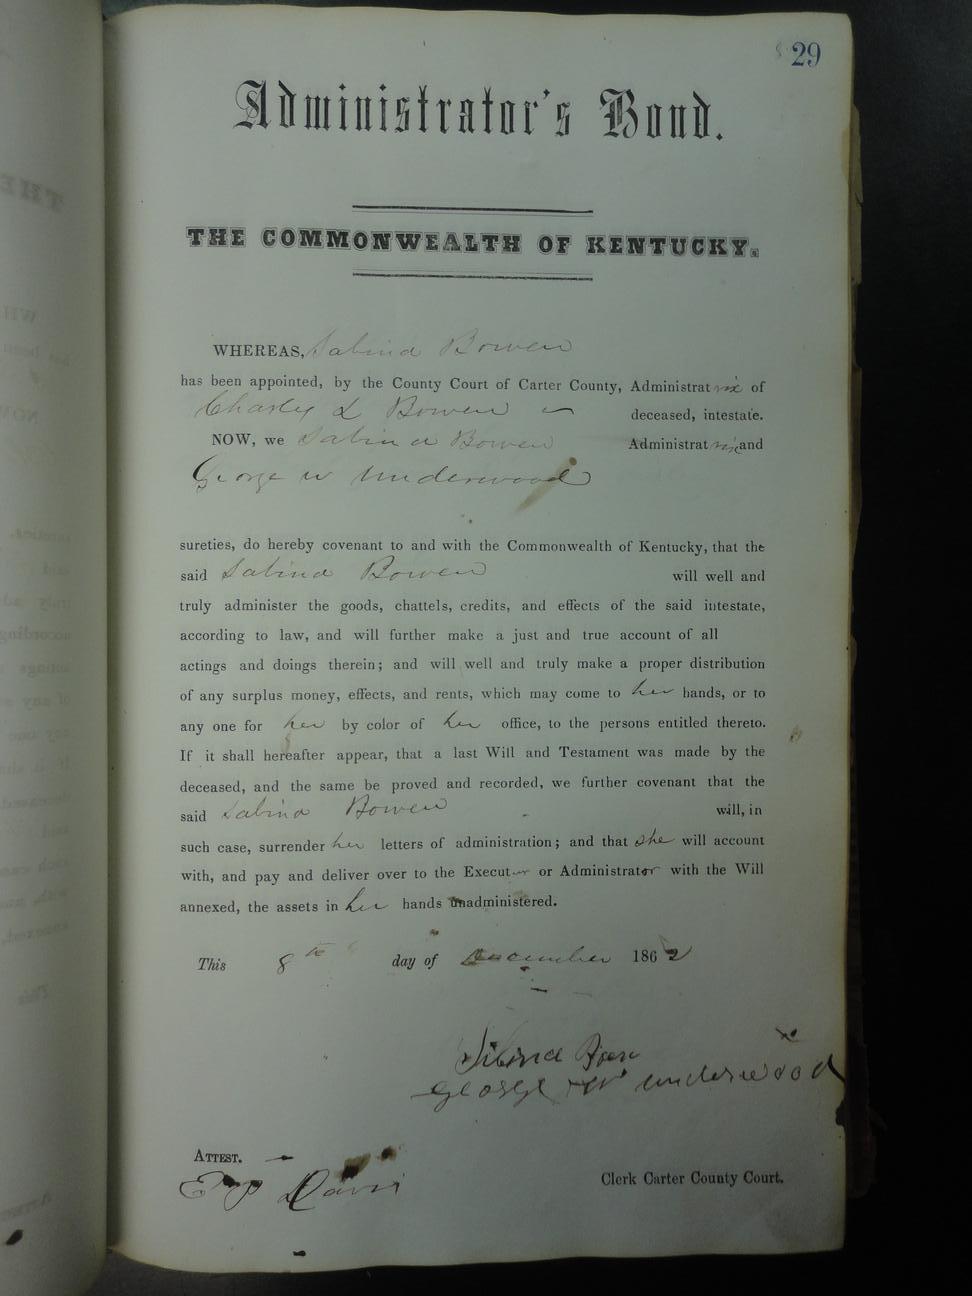 29
Administrator's Bond.
THE COMMONWEALTH OF KENTUCKY.
WHEREAS, Sabina Bowen
has been appointed, by the County Court of Carter County, Administratrix of
Charles L Bowen deceased, intestate.
NOW, we Sabina Bowen Administratrix and
George W Underwood
sureties, do hereby covenant to and with the Commonwealth of Kentucky, that the
said Sabina Bowen will well and
truly administer the goods, chattels, credits, and effects of the said intestate,
according to law, and will further make a just and true account of all
actings and doings therein; and will well and truly make a proper distribution
of any surplus money, effects, and rents, which may come to her hands, or to
any one for her by color of her office, to the persons entitled thereto.
If it shall hereafter appear, that a last Will and Testament was made by the
deceased, and the same be proved and recorded, we further covenant that the
said Sabina Bowen will, in
such case, surrender her letters of administration; and that she will account
with, and pay and deliver over to the Executor or Administrator with the Will
annexed, the assets in her hands unadministered.
This 8th day of December 1862
Sibina Boen
George W underwood
ATTEST.
Davis Clerk Carter County Court.